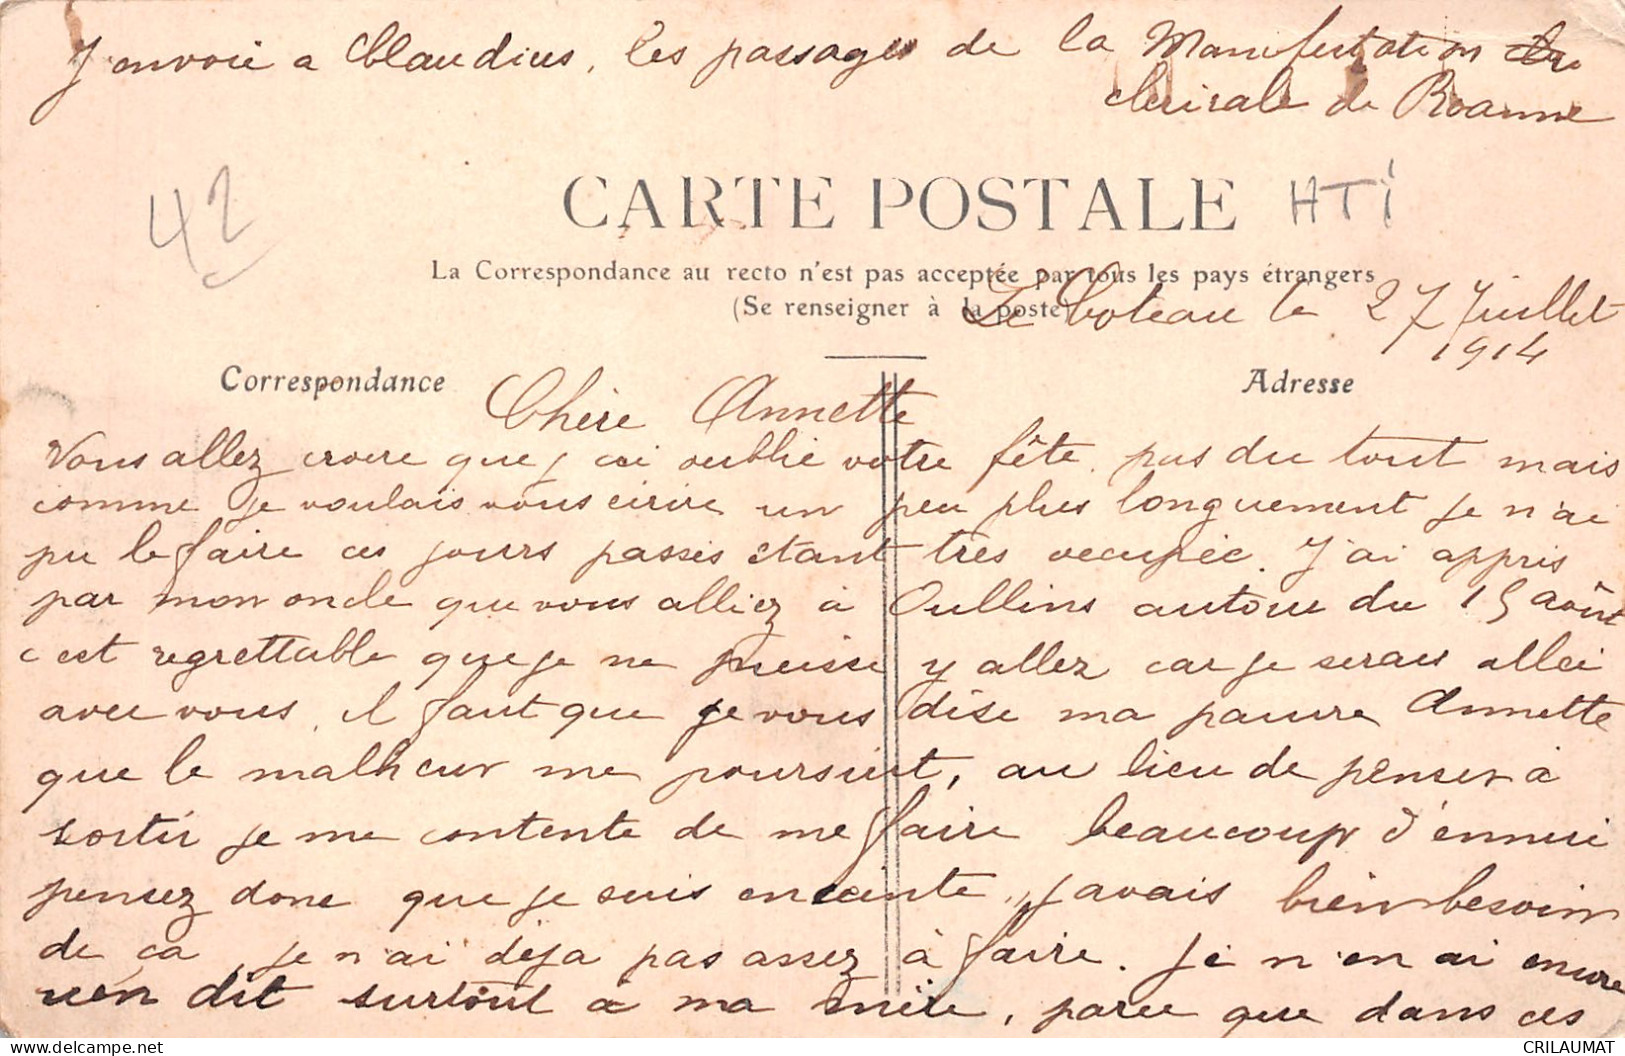 J'envoie a Claudius, les passages de la Manifestation
clericale de Roanne
42
CARTE POSTALE HTI
La Correspondance au recto n'est pas acceptée par tous les pays étrangers
(Se renseigner à la poste)
Le Coteau le 27 Juillet
1914
Correspondance
Adresse
Chère Annette
Vous allez croire que j'ai oublié votre fête, pas du tout mais
comme je voulais vous écrire un peu plus longuement je n'ai
pu le faire ces jours passés étant très occupée. J'ai appris
par mon oncle que vous alliez à Oullins autour du 15 août
c'est regrettable que je ne puisse y aller car je serais allei
avec vous, il faut que je vous dise ma pauvre Annette
que le malheur me poursuit, au lieu de penser à
sortir je me contente de me faire beaucoup d'ennui
pensez donc que je suis enceinte, j'avais bien besoin
de ça, je n'ai déjà pas assez à faire. Je n'en ai encore
rien dit surtout à ma mère, parce que dans ces
CRILAUMAT